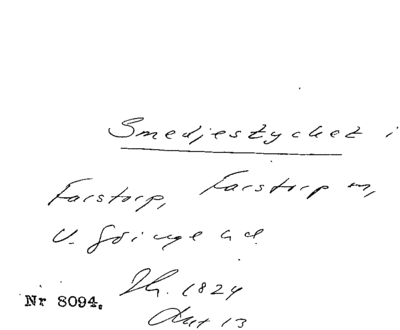 Smedjestycket i
Farstorp, Farstorp sn,
V. Göinge hd.
Sk. 1824
Nr 8094.
Akt 13